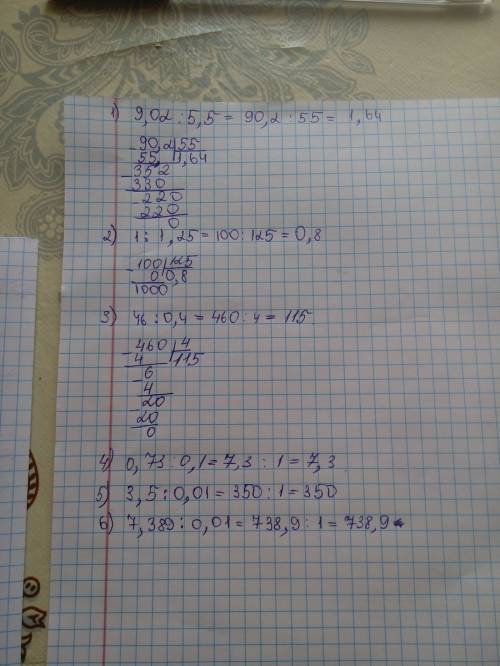 1) 9,02 : 5,5 = 90,2 : 55 = 1,64
- 90,2 | 55
55 | 1,64
- 352
330
- 220
220
0
2) 1 : 1,25 = 100 : 125 = 0,8
- 100 | 125
0 | 0,8
1000
3) 46 : 0,4 = 460 : 4 = 115
- 460 | 4
4 | 115
- 6
4
- 20
20
0
4) 0,73 : 0,1 = 7,3 : 1 = 7,3
5) 3,5 : 0,01 = 350 : 1 = 350
6) 7,389 : 0,01 = 738,9 : 1 = 738,9